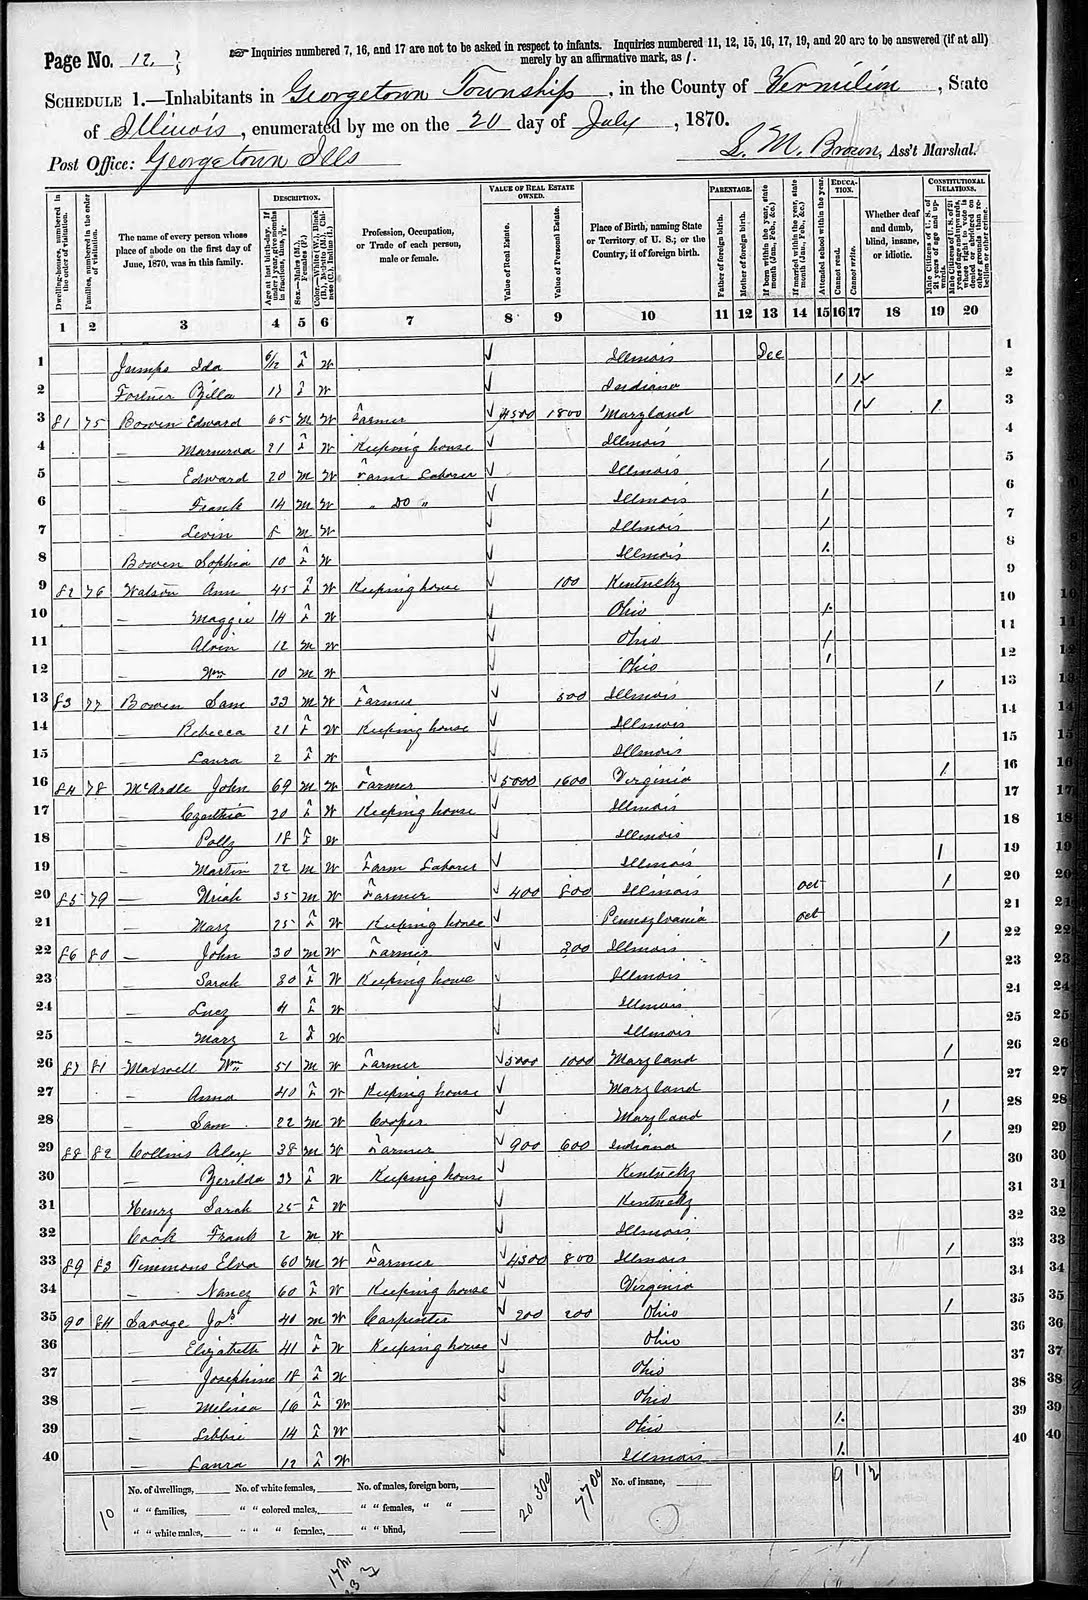 Page No. 12.
☞ Inquiries numbered 7, 16, and 17 are not to be asked in respect to infants. Inquiries numbered 11, 12, 15, 16, 17, 19, and 20 are to be answered (if at all)
merely by an affirmative mark, as /.
SCHEDULE 1.—Inhabitants in Georgetown Township, in the County of Vermilion, State
of Illinois, enumerated by me on the 20 day of July, 1870.
Post Office: Georgetown Ills
L. M. Brown, Ass't Marshal.
Dwelling-houses, numbered in the order of visitation.
Families, numbered in the order of visitation.
The name of every person whose place of abode on the first day of June, 1870, was in this family.
DESCRIPTION.
Profession, Occupation, or Trade of each person, male or female.
VALUE OF REAL ESTATE OWNED.
Value of Real Estate.
Value of Personal Estate.
Place of Birth, naming State or Territory of U. S.; or the Country, if of foreign birth.
PARENTAGE.
Father of foreign birth.
Mother of foreign birth.
If born within the year, state month (Jan., Feb., &c.)
If married within the year, state month (Jan., Feb., &c.)
Attended school within the year.
EDUCATION.
Cannot read.
Cannot write.
Whether deaf and dumb, blind, insane, or idiotic.
CONSTITUTIONAL RELATIONS.
1 2 3 4 5 6 7 8 9 10 11 12 13 14 15 16 17 18 19 20
1 Jumps Ida 6/12 F W Illinois Dec 1
2 Fortner Zilla 17 F W Indiana 1 1 2
3 81 75 Bowen Edward 65 M W Farmer 4500 1800 Maryland 1 1 3
4 — Marnerva 21 F W Keeping house Illinois 4
5 — Edward 20 M W Farm Laborer Illinois 1 5
6 — Frank 14 M W " Do " Illinois 1 6
7 — Levin 8 M W Illinois 1 7
8 Bowen Sophia 10 F W Illinois 1 8
9 82 76 Watson Ann 45 F W Keeping house 100 Kentucky 9
10 — Maggie 14 F W Ohio 1 10
11 — Alvin 12 M W Ohio 1 11
12 — Wm 10 M W Ohio 1 12
13 83 77 Bowen Sam 33 M W Farmer 500 Illinois 1 13
14 — Rebecca 21 F W Keeping house Illinois 14
15 — Laura 2 F W Illinois 15
16 84 78 McArdle John 69 M W Farmer 5000 1600 Virginia 1 16
17 — Cynthia 20 F W Keeping house Illinois 17
18 — Polly 18 F W Illinois 18
19 — Martin 22 M W Farm Laborer Illinois 1 19
20 85 79 — Uriah 35 M W Farmer 400 800 Illinois Oct 1 20
21 — Mary 25 F W Keeping house Pennsylvania Oct 21
22 86 80 — John 30 M W Farmer 200 Illinois 1 22
23 — Sarah 30 F W Keeping house Illinois 23
24 — Lucy 4 F W Illinois 24
25 — Mary 2 F W Illinois 25
26 87 81 Maxwell Wm 51 M W Farmer 5000 1000 Maryland 1 26
27 — Anna 40 F W Keeping house Maryland 27
28 — Sam 22 M W Cooper Maryland 1 28
29 88 82 Collins Alex 38 M W Farmer 900 600 Indiana 1 29
30 — Zerilda 37 F W Keeping house Kentucky 30
31 Henry Sarah 25 F W Kentucky 31
32 Cook Frank 2 M W Illinois 32
33 89 83 Timmons Elva 60 M W Farmer 4300 800 Illinois 1 33
34 — Nancy 60 F W Keeping house Virginia 34
35 90 84 Savage Jos. 40 M W Carpenter 200 200 Ohio 1 35
36 — Elizabeth 41 F W Keeping house Ohio 36
37 — Josephine 18 F W Ohio 37
38 — Melissa 16 F W Ohio 38
39 — Libbie 14 F W Ohio 1 39
40 — Laura 12 F W Illinois 1 40
No. of dwellings, No. of white females, No. of males, foreign born, No. of insane, 9 1 2
10 " " families, " " colored males, " " females, " " 20 300 7700
" " white males, " " " females, " " blind,
17 M
23 F